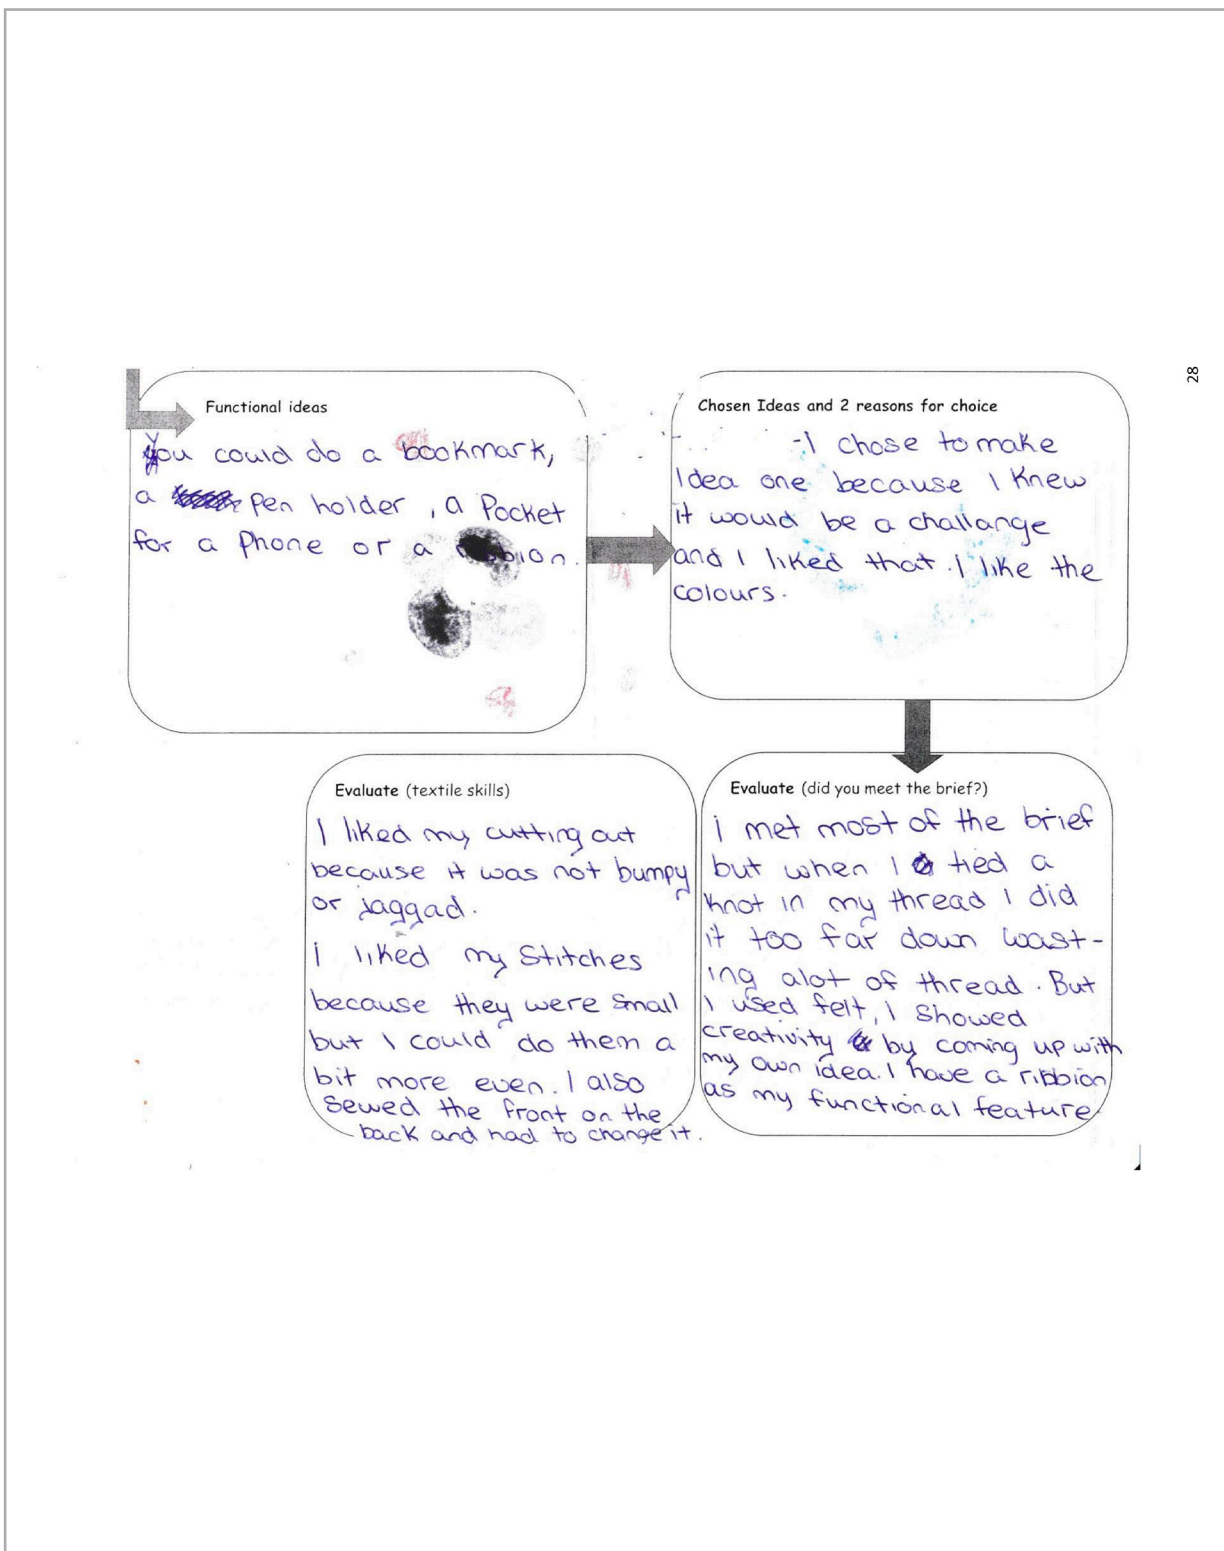 28
Functional ideas
You could do a bookmark,
a pen holder, a Pocket
for a Phone or a
Chosen Ideas and 2 reasons for choice
-I chose to make
Idea one because I knew
it would be a challange
and I liked that. I like the
colours.
Evaluate (textile skills)
I liked my cutting out
because it was not bumpy
or jaggad.
i liked my Stitches
because they were small
but I could do them a
bit more even. I also
sewed the front on the
back and had to change it.
Evaluate (did you meet the brief?)
i met most of the brief
but when I tied a
knot in my thread I did
it too far down wast-
ing alot of thread. But
I used felt, I showed
creativity by coming up with
my own idea. I have a ribbion
as my functional feature.